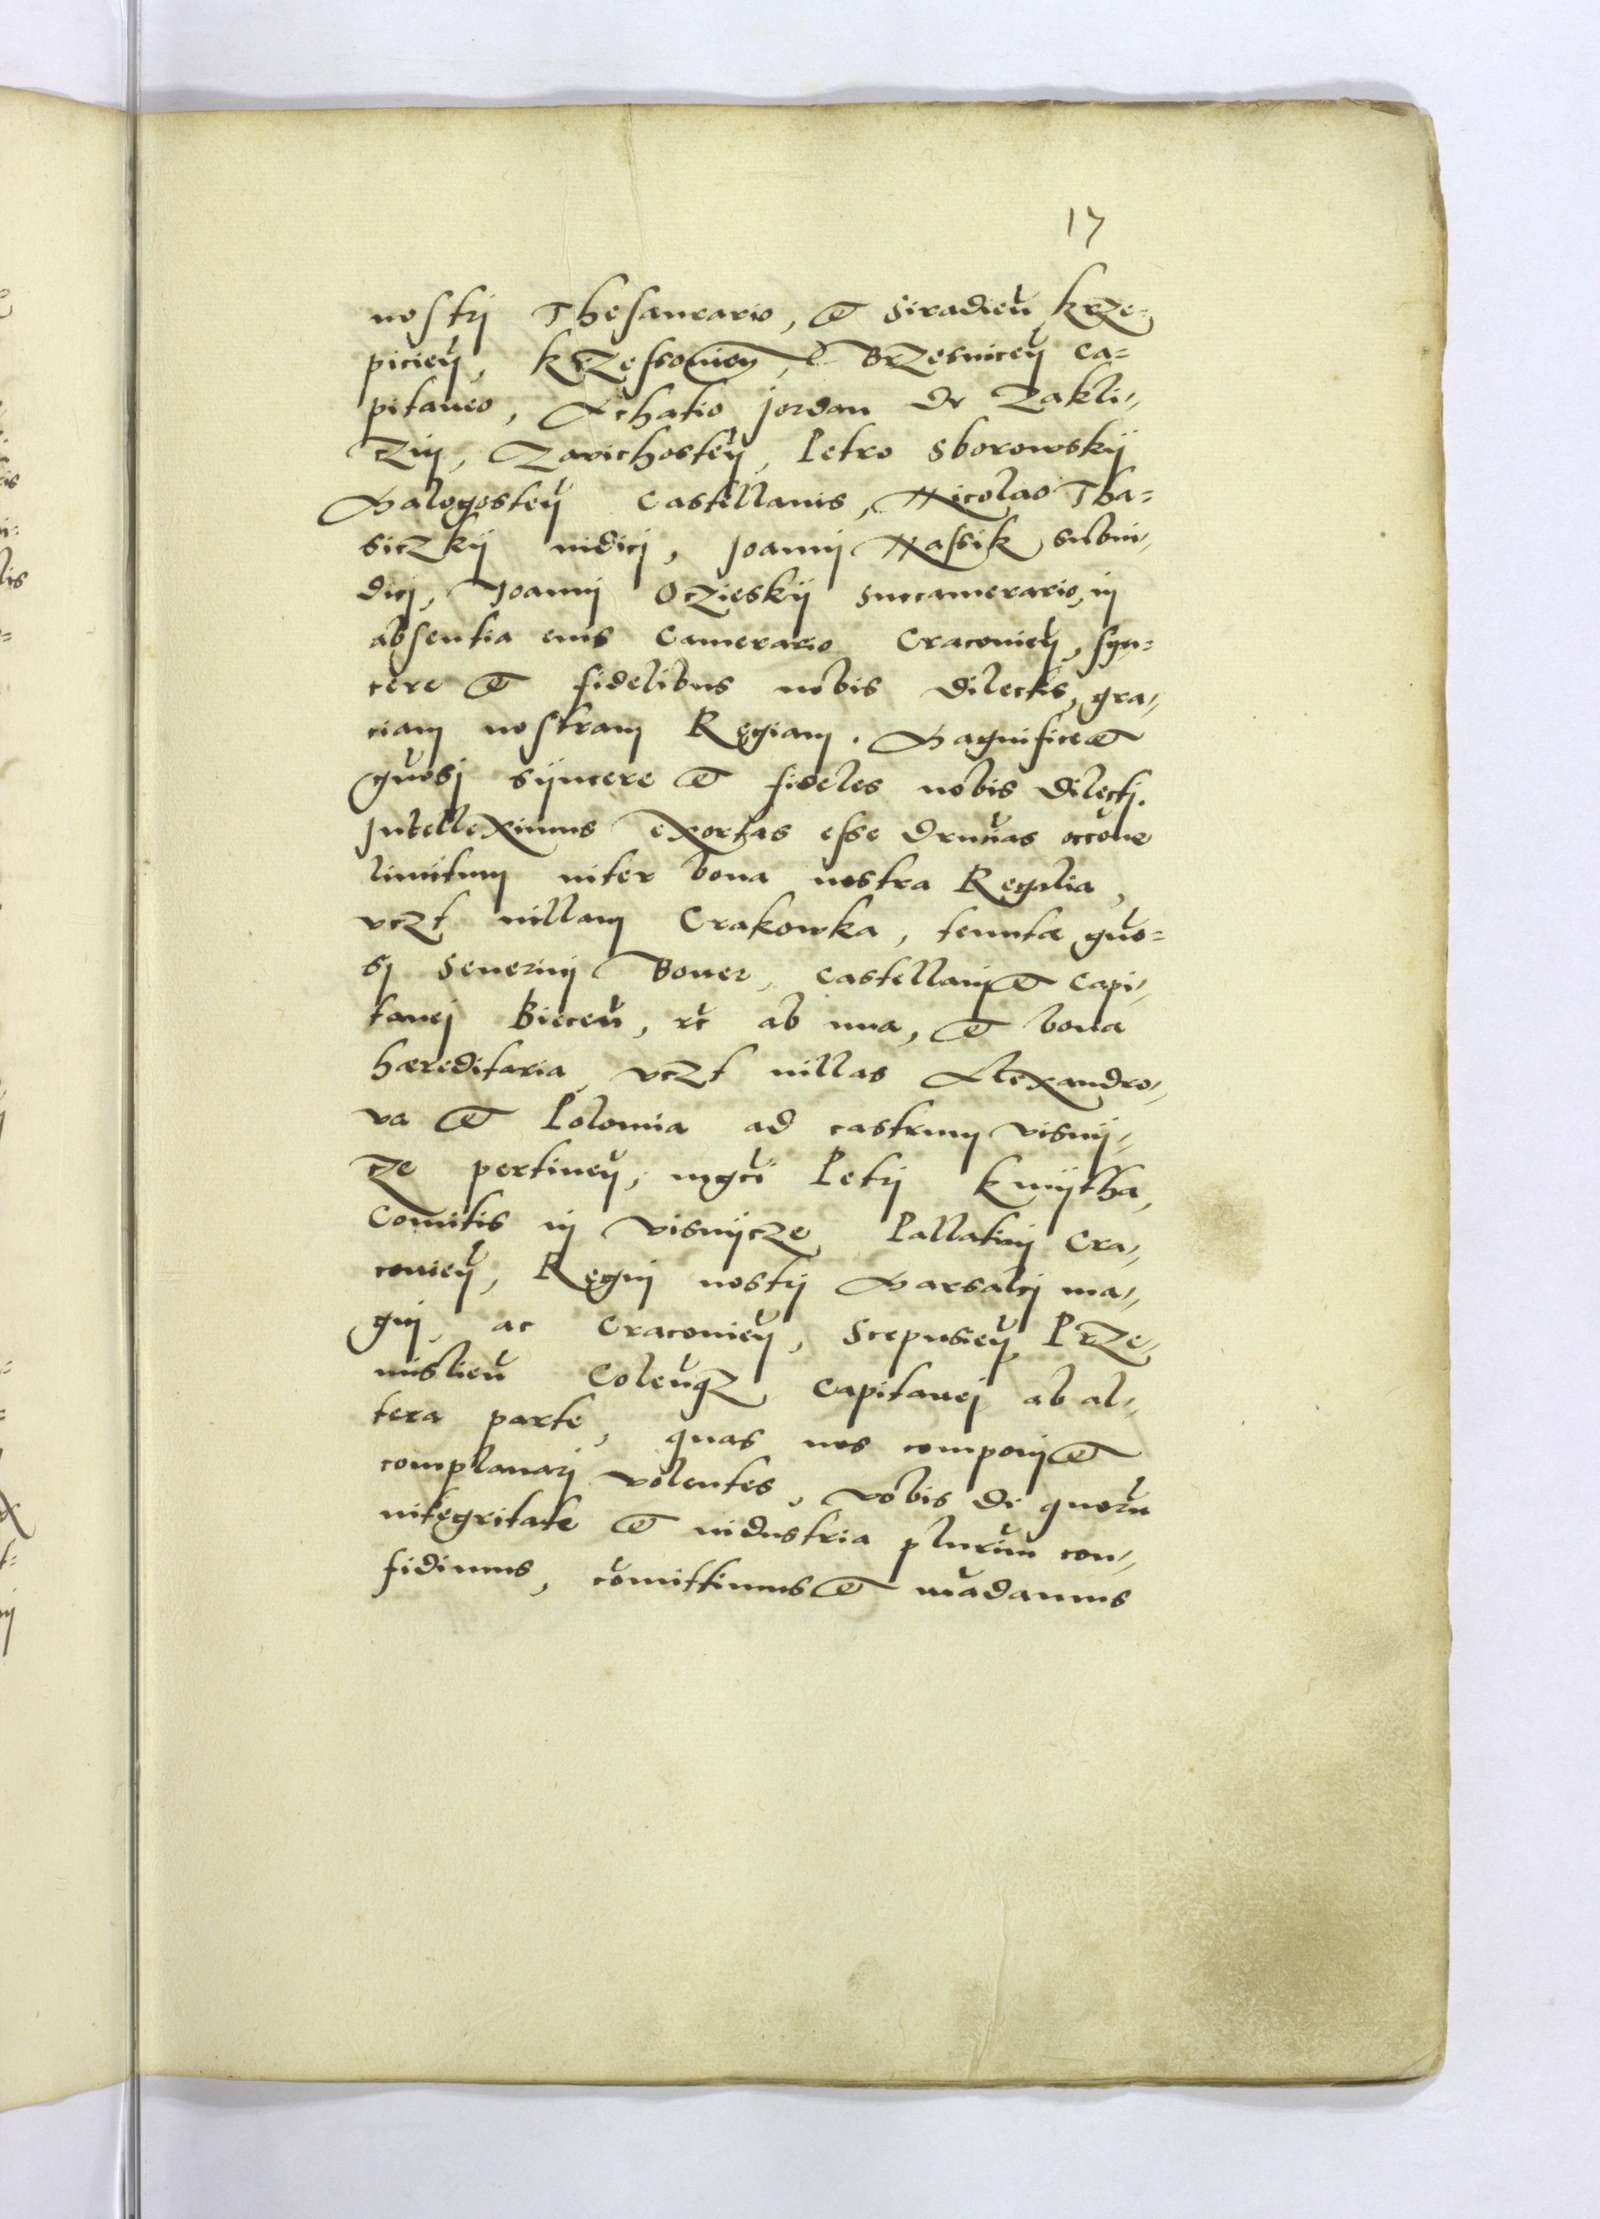 17
nostrj Thesaurario, et Siradieñ Krze-
picieñ, Krzessowieñ, et Brzesniceñ Ca-
pitaneo, Achatio Jordan de Zakli-
czin, Zavichosteñ, Petro Sborowskij
Malogosteñ Castellanis, Nicolao Tha-
siczkij iudicj, Joannj Nassik subiu-
dicj, Joannj Oczieskij Succamerario, in
absentia eius Camerario Cracovieñ, syn-
cere et fidelibus nobis dilectis, gra-
ciam nostram Regiam. Magnifice et
gñosj sijncere et fideles nobis dilectj.
Intelleximus exortas esse drñcias occõne
limitum inter bona nostra Regalia,
vczt villam Crakowka, tenutæ gño-
sj Severinj Boner, Castellanj et Capi-
tanej Bieceñ, rc ab una, et bona
hæreditaria vczt villas Alexandro-
va et Polomia ad castrum Visnij-
cze pertineñ, mgci Petrj Kmijtha,
Comitis in Visnijcze Pallatinj Cra-
covieñ, Regni nostrj Marsalcj ma-
gnj, ac Cracovieñ, Scepusieñ, Prze-
mislieñ Coleñqz Capitanej ab al-
tera parte, quas nos componj et
complanarj volentes, vobis di quorũ
integritate et industria plurim̃ con-
fidimus, cõmittimus et mãdamus